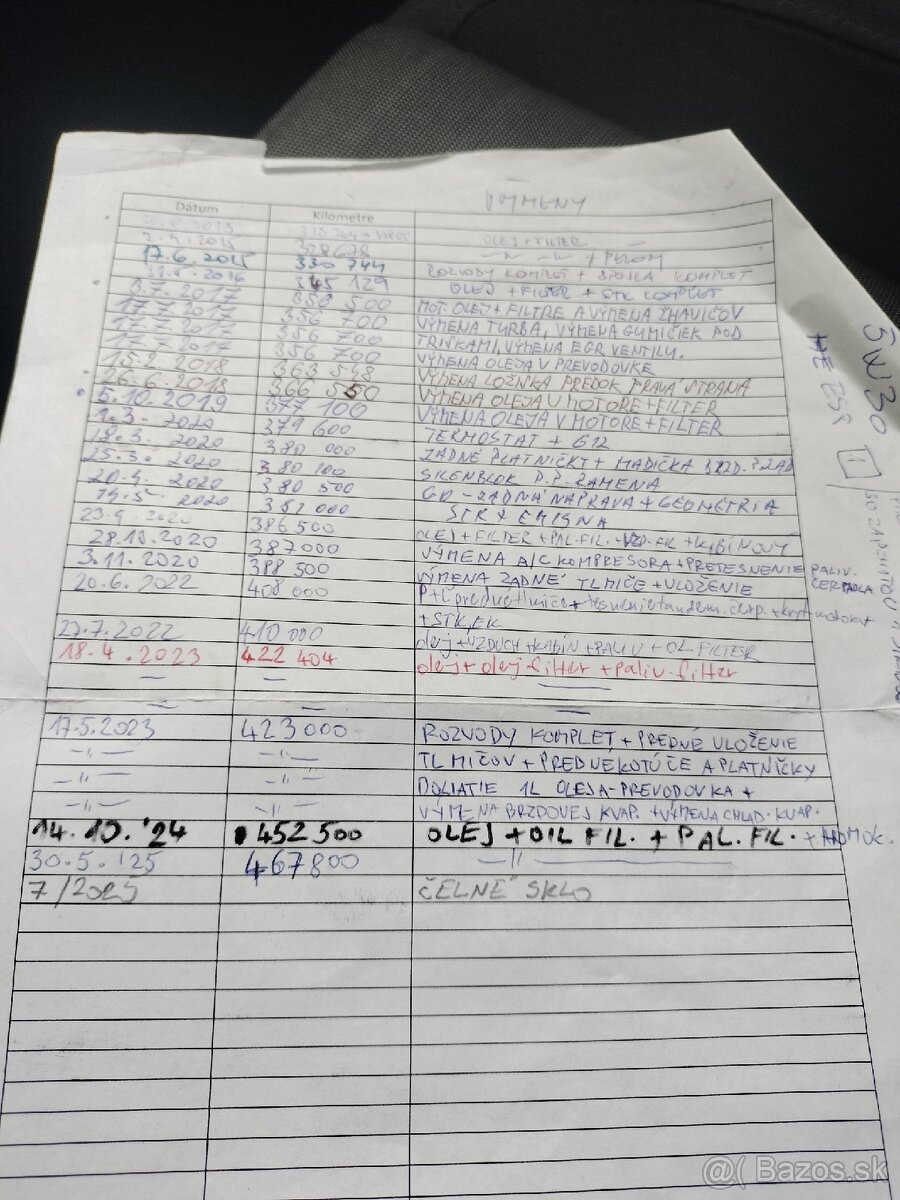 VÝMENY
Dátum Kilometre
OLEJ + FILTER
17.6.2015 330 744
ROZVODY KOMPLET + SPOJKA KOMPLET
345 129 OLEJ + FILTER + STK KOMPLET
3.7.2017 350 500 MOT. OLEJ + FILTRE A VÝMENA ŽHAVIČOV
17.7.2017 356 700 VÝMENA TURBA, VÝMENA GUMIČIEK POD
17.7.2017 356 700 TRISKAMI, VÝMENA EGR VENTILU.
17.7.2017 356 700 VÝMENA OLEJA V PREVODOVKE
15.2.2018 363 548 VÝMENA LOŽISKA PREDOK PRAVÁ STRANA
26.6.2018 366 550 VÝMENA OLEJA V MOTORE + FILTER
5.10.2019 377 100 VÝMENA OLEJA V MOTORE + FILTER
1.3.2020 379 600 TERMOSTAT + G12
18.3.2020 380 000 ZADNÉ PLATNIČKY + HADIČKA BRZD. P. ZAD
25.3.2020 380 100 SILENBLOK P.P. RAMENA
20.4.2020 380 500 GO - ZADNÁ NÁPRAVA + GEOMETRIA
19.5.2020 381 000 STK & EMISNÁ
386 500 OLEJ + FILTER + PAL. FIL. + VZD. FIL + KABÍNOVÝ
2020 387000 VÝMENA A/C KOMPRESORA + PRETESNENIE PALIV. ČERPADLA
3.11.2020 388 500 VÝMENA ZADNÉ TLMIČE + ULOŽENIE
20.6.2022 408 000 P+Ľ predné tlmiče + tesnenie tandem. čerp. + kryt motora
+ STK, EK
27.7.2022 410 000 olej + VZDUCH + KABÍN + PALIV + OL. FILTER
18.4.2023 422 404 olej + olej. filter + paliv. filter
17.5.2023 423000 ROZVODY KOMPLET + PREDNÉ ULOŽENIE
-"- -"- TLMIČOV + PREDNÉ KOTÚČE A PLATNIČKY
-"- -"- DOLIATIE 1L OLEJA - PREVODOVKA +
-"- -"- VÝMENA BRZDOVEJ KVAP. + VÝMENA CHLAD. KVAP.
14.10.'24 452 500 OLEJ + OIL FIL. + PAL. FIL. + HOMOK.
30.5.'25 467800 -"-
7/2025 ČELNÉ SKLO
5W30
@( Bazos.sk